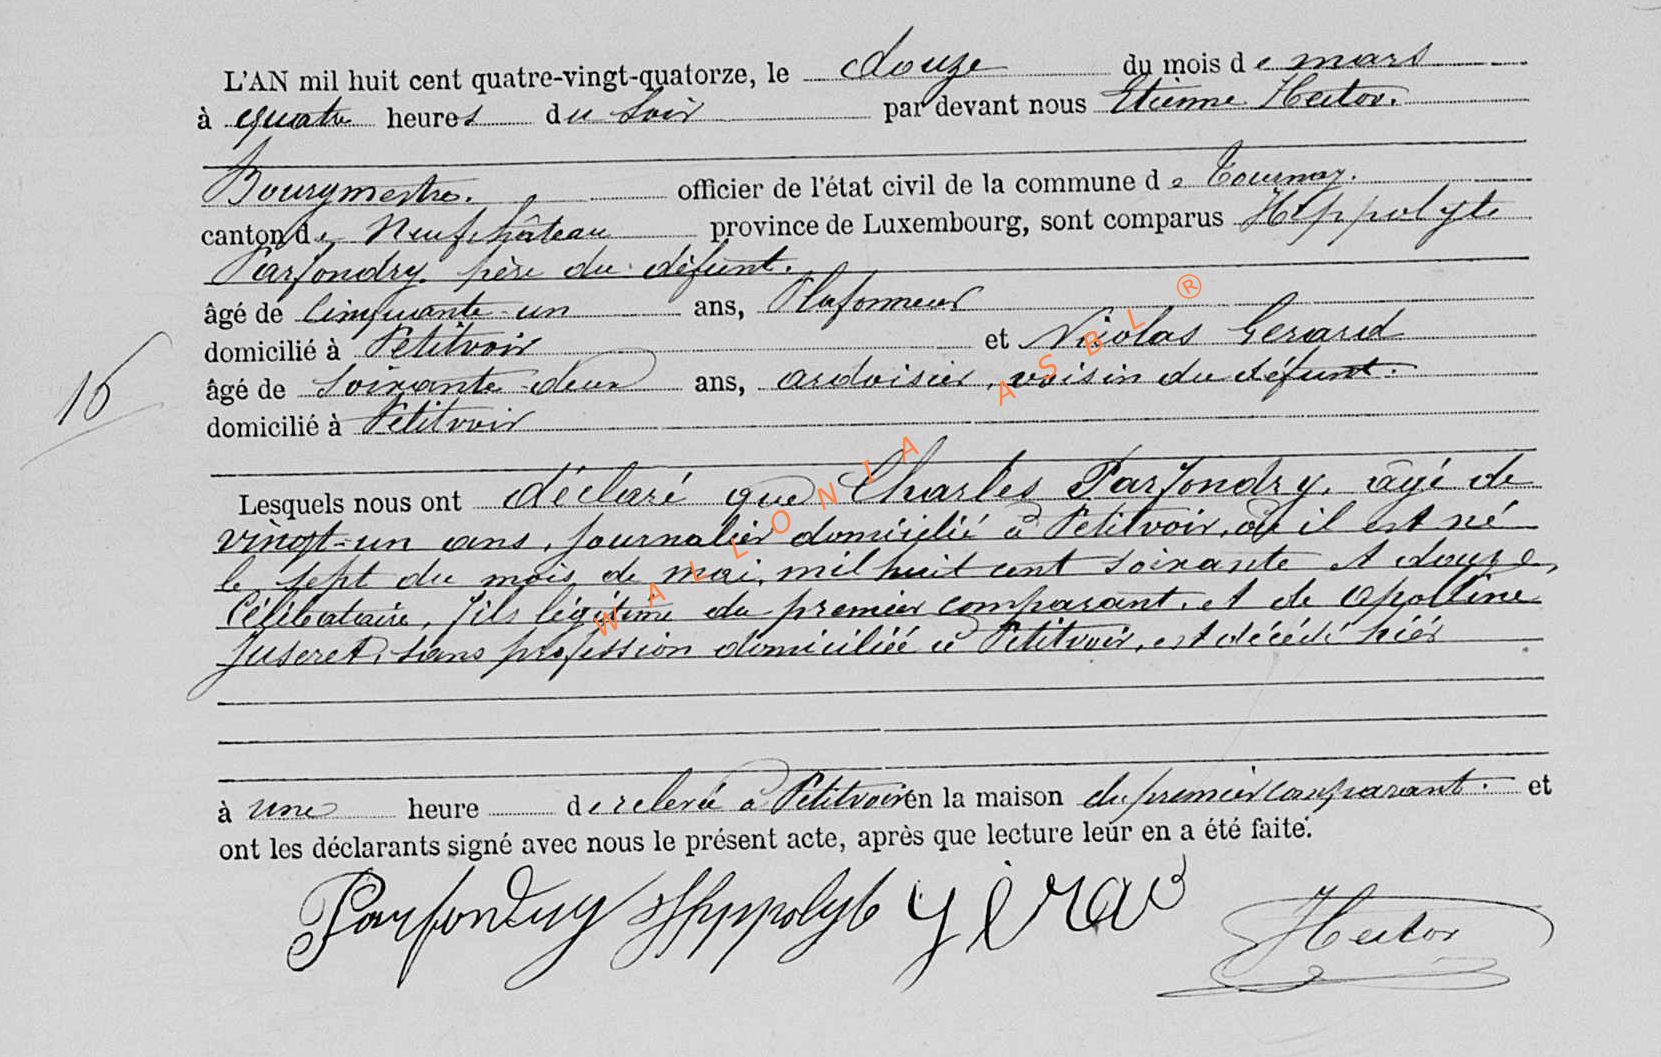 L'AN mil huit cent quatre-vingt-quatorze, le douze du mois de mars
à quatre heures du soir par devant nous Etienne Hector.
Bourgmestre. officier de l'état civil de la commune de Tournay.
canton de Neufchâteau province de Luxembourg, sont comparus Hippolyte
Parfondry père du défunt.
âgé de Cinquante-un ans, Plafonneur
domicilié à Petitvoir et Nicolas Gerard
âgé de Soixante-deux ans, ardoisier, voisin du défunt.
domicilié à Petitvoir
15
Lesquels nous ont déclaré que Charles Parfondry, âgé de
vingt-un ans, journalier domicilié à Petitvoir, où il est né
le sept du mois de mai, mil huit cent soixante et douze,
Célibataire, fils légitime du premier comparant, et de Apolline
Juseret, sans profession domiciliée à Petitvoir, est décédé hier
à une heure de relevée à Petitvoir en la maison du premier comparant. et
ont les déclarants signé avec nous le présent acte, après que lecture leur en a été faite.
Parfondry Hyppolyte gérard Hector
WALLONIA ASBL ®